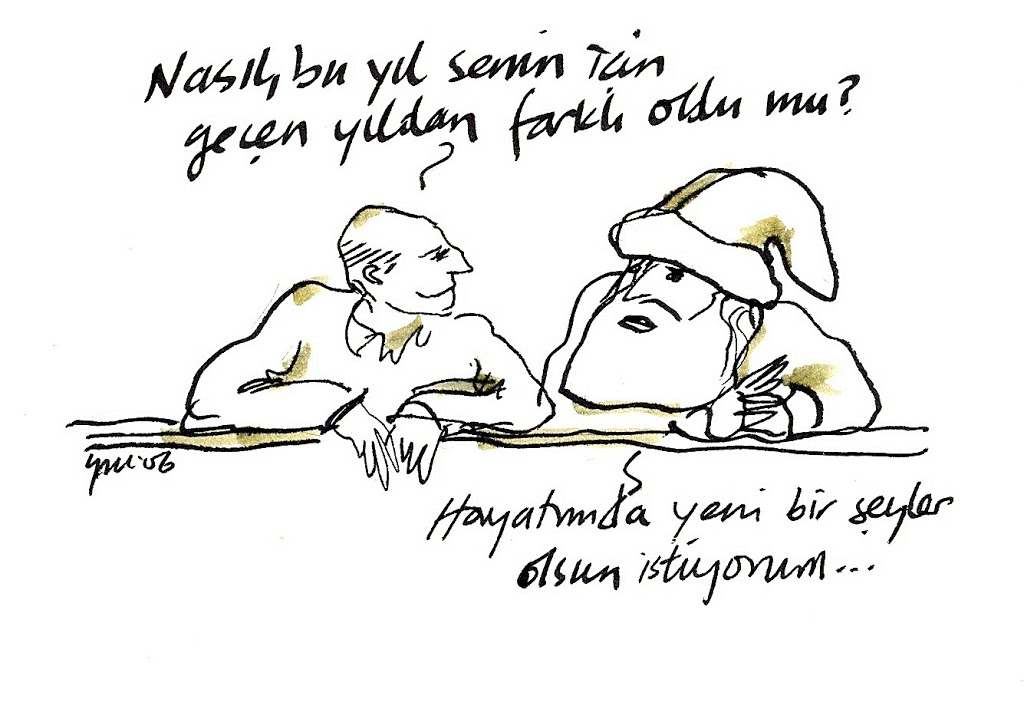 Nasıl, bu yıl senin için
geçen yıldan farklı oldu mu?
Hayatımda yeni bir şeyler
olsun istiyorum...